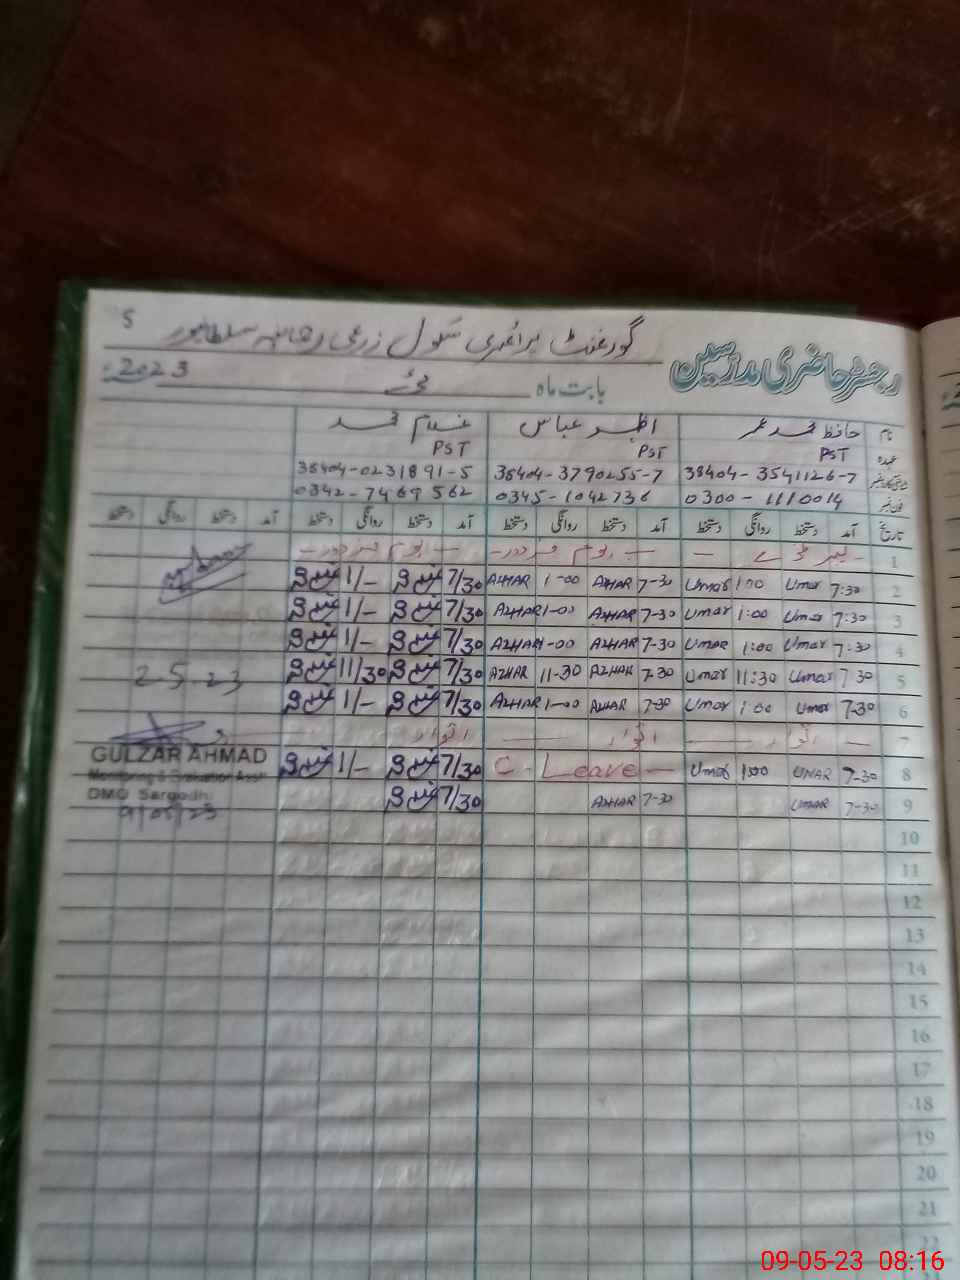 5
رجسٹر حاضری مدرسین
گورنمنٹ پرائمری سکول زرعی رقبہ سلطانپور
بابت ماہ مئی 2023
نام حافظ محمد عمر اظہر عباس غلام محمد
عہدہ PST PST PST
38404-3541126-7 38404-3790255-7 38404-0231891-5
فون نمبر 0300-1110014 0345-1042736 0342-7469562
تاریخ آمد دستخط روانگی دستخط آمد دستخط روانگی دستخط آمد دستخط روانگی دستخط آمد دستخط روانگی دستخط
1 لیبر ڈے یوم مزدور یوم مزدور
2 7:30 Umar 1:00 Umar 7-30 AZHAR 1-00 AZHAR 7/30 1/-
3 7:30 Umar 1:00 Umar 7-30 AZHAR 1-00 AZHAR 7/30 1/-
4 7:30 Umar 1:00 Umar 7-30 AZHAR 1-00 AZHAR 7/30 1/-
5 7:30 Umar 11:30 Umar 7-30 AZHAR 11-30 AZHAR 7/30 11/30
2-5-23
6 7-30 Umar 1:00 Umar 7-30 AZHAR 1-00 AZHAR 7/30 1/-
7 اتوار اتوار اتوار
8 7-30 UMAR 1:00 Umar C-Leave 7/30 1/-
9 7-30 UMAR 7-30 AZHAR 7/30
GULZAR AHMAD
Monitoring & Evaluation Asstt
DMO Sargodha
9/05/23
10
11
12
13
14
15
16
17
18
19
20
21
22
09-05-23 08:16